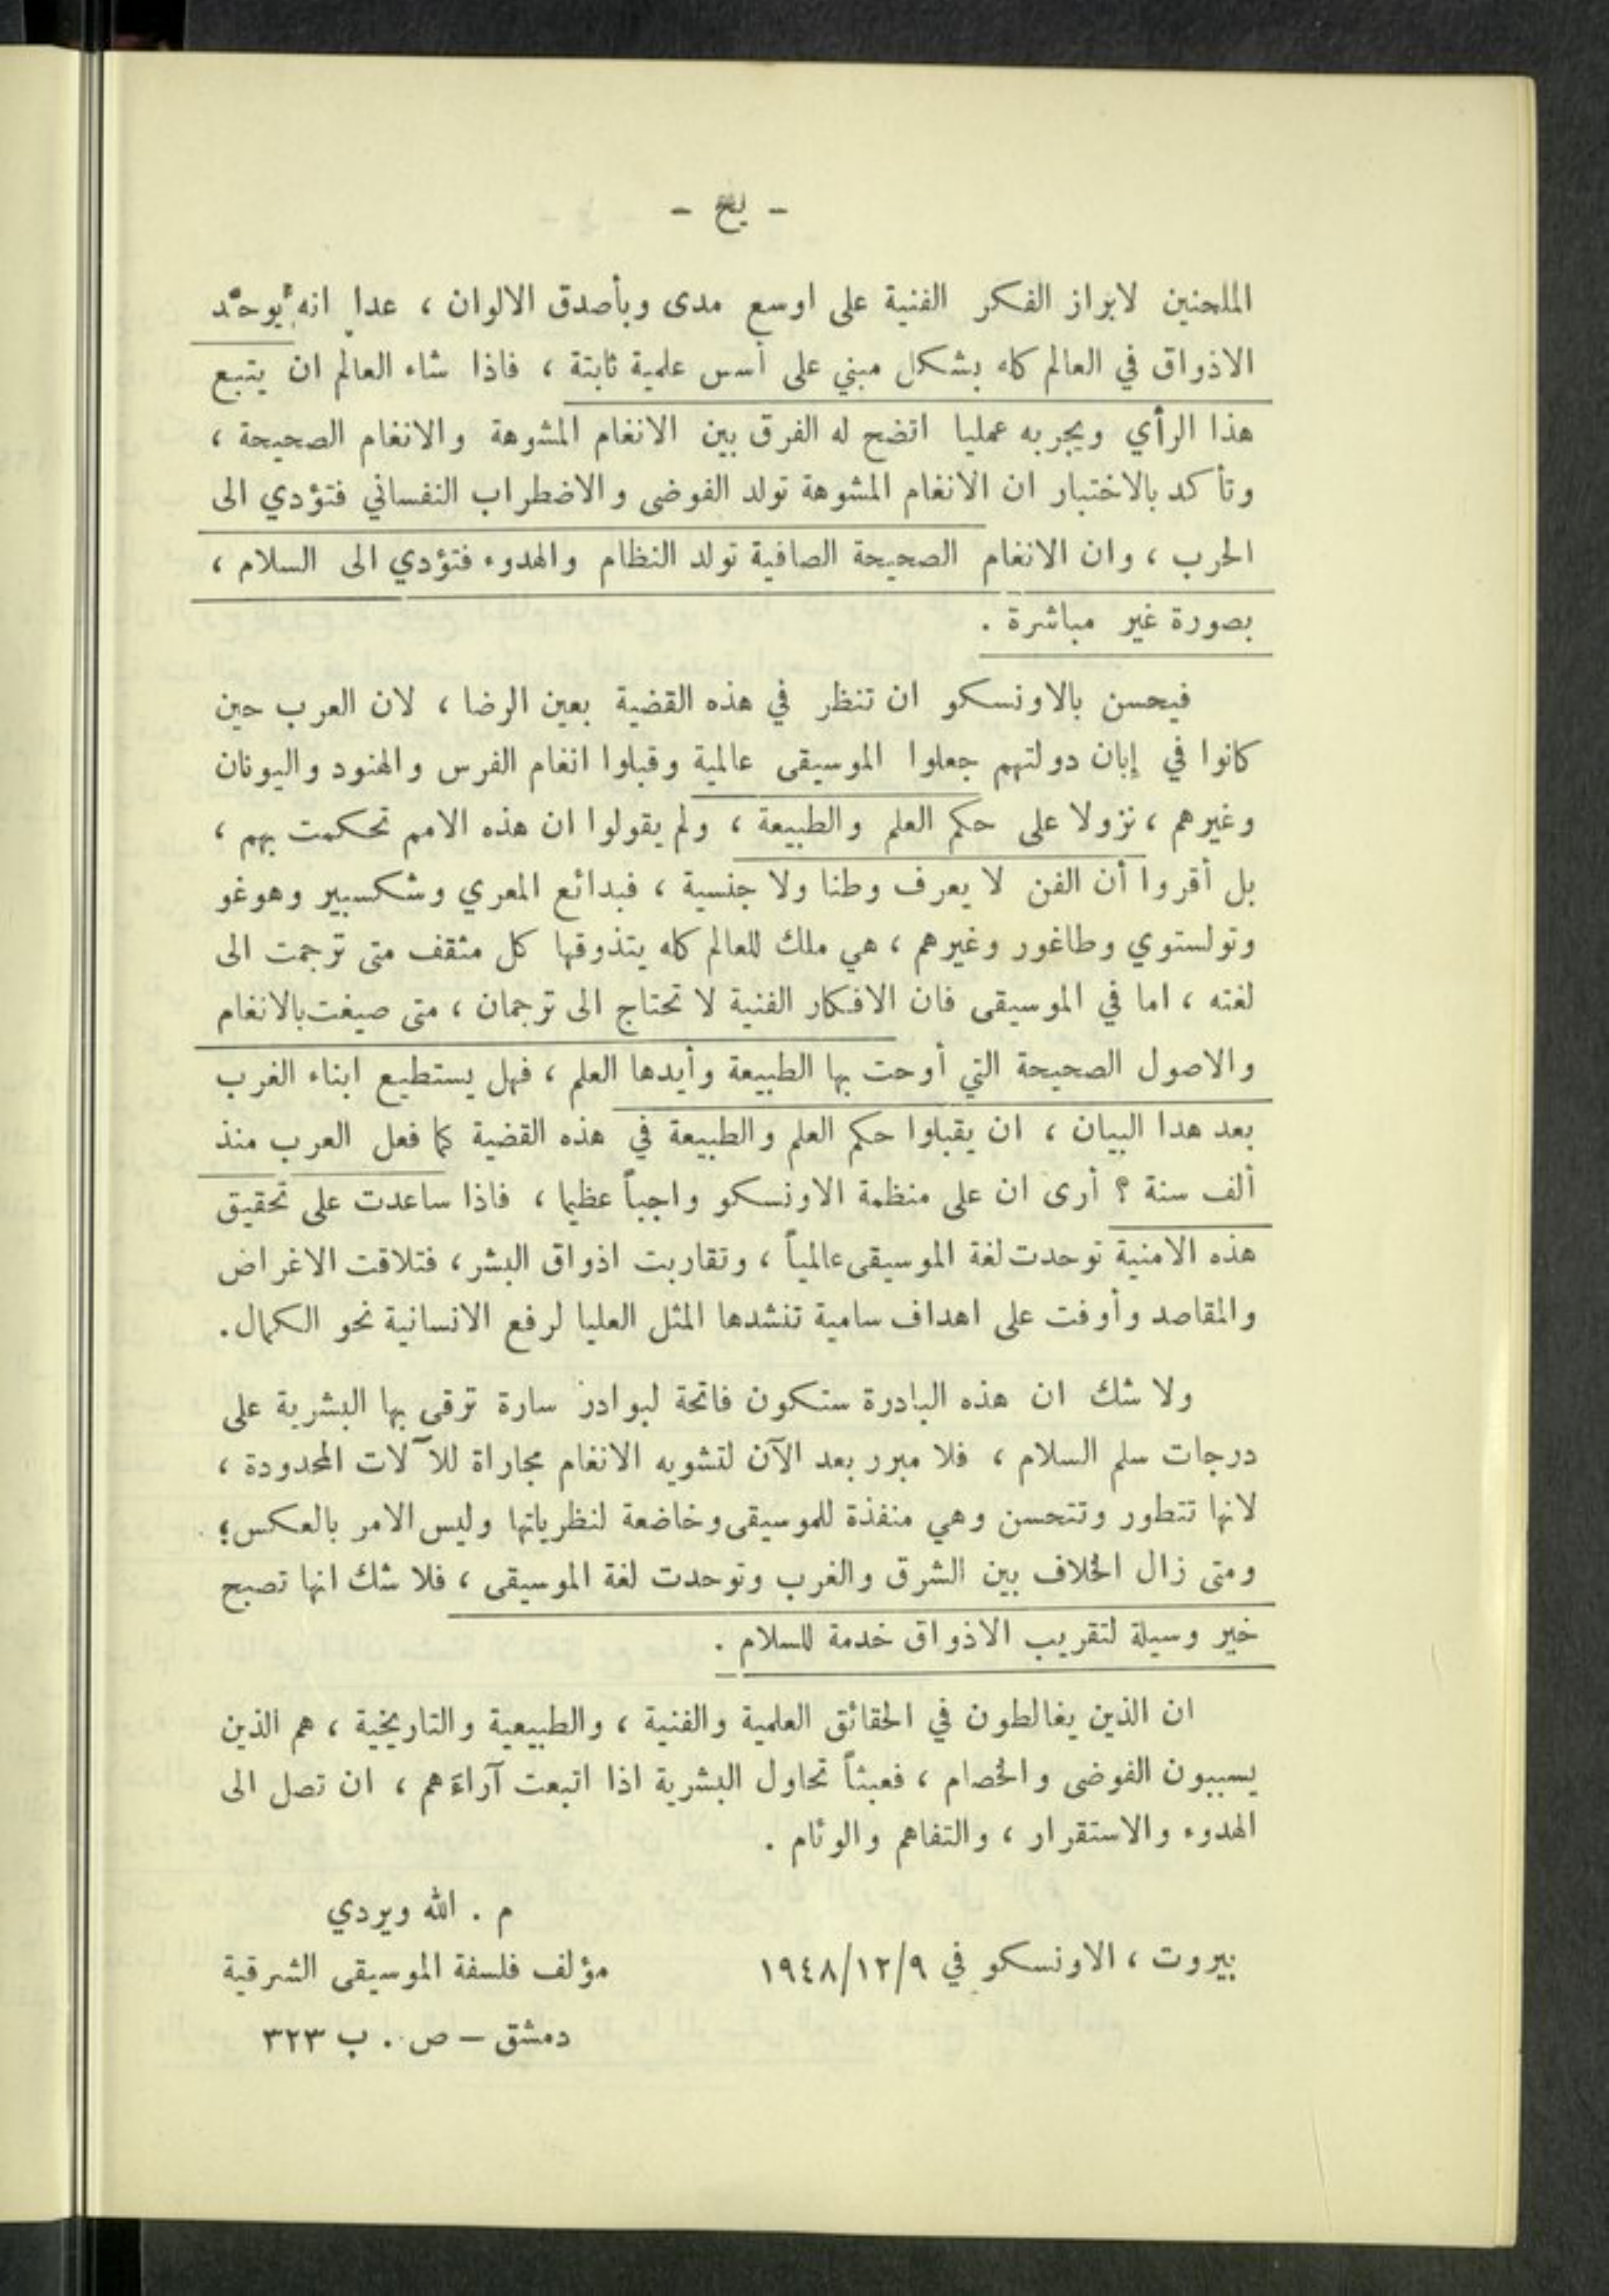 - يح -
الملحنين لابراز الفكر الفنية على اوسع مدى وبأصدق الالوان ، عدا انه يُوحّد
الاذواق في العالم كله بشكل مبني على أسس علمية ثابتة ، فاذا شاء العالم ان يتبع
هذا الرأي ويجربه عمليا اتضح له الفرق بين الانغام المشوهة والانغام الصحيحة ،
وتأكد بالاختبار ان الانغام المشوهة تولد الفوضى والاضطراب النفساني فتؤدي الى
الحرب ، وان الانغام الصحيحة الصافية تولد النظام والهدوء فتؤدي الى السلام ،
بصورة غير مباشرة .
فيحسن بالاونسكو ان تنظر في هذه القضية بعين الرضا ، لان العرب حين
كانوا في إبان دولتهم جعلوا الموسيقى عالمية وقبلوا انغام الفرس والهنود واليونان
وغيرهم ، نزولا على حكم العلم والطبيعة ، ولم يقولوا ان هذه الامم تحكمت بهم ،
بل أقروا أن الفن لا يعرف وطنا ولا جنسية ، فبدائع المعري وشكسبير وهوغو
وتولستوي وطاغور وغيرهم ، هي ملك للعالم كله يتذوقها كل مثقف متى ترجمت الى
لغته ، اما في الموسيقى فان الافكار الفنية لا تحتاج الى ترجمان ، متى صيغت بالانغام
والاصول الصحيحة التي أوحت بها الطبيعة وأيدها العلم ، فهل يستطيع ابناء الغرب
بعد هدا البيان ، ان يقبلوا حكم العلم والطبيعة في هذه القضية كما فعل العرب منذ
ألف سنة ؟ أرى ان على منظمة الاونسكو واجباً عظيما ، فاذا ساعدت على تحقيق
هذه الامنية توحدت لغة الموسيقى عالمياً ، وتقاربت اذواق البشر ، فتلاقت الاغراض
والمقاصد وأوفت على اهداف سامية تنشدها المثل العليا لرفع الانسانية نحو الكمال.
ولا شك ان هذه البادرة ستكون فاتحة لبوادر سارة ترقى بها البشرية على
درجات سلم السلام ، فلا مبرر بعد الآن لتشويه الانغام مجاراة للآلات المحدودة ،
لانها تتطور وتتحسن وهي منفذة للموسيقى وخاضعة لنظرياتها وليس الامر بالعكس؛
ومتى زال الخلاف بين الشرق والغرب وتوحدت لغة الموسيقى ، فلا شك انها تصبح
خير وسيلة لتقريب الاذواق خدمة للسلام .
ان الذين يغالطون في الحقائق العلمية والفنية ، والطبيعية والتاريخية ، هم الذين
يسببون الفوضى والخصام ، فعبثاً تحاول البشرية اذا اتبعت آراءَهم ، ان تصل الى
الهدوء والاستقرار ، والتفاهم والوئام .
م . الله ويردي
بيروت ، الاونسكو في ١٩٤٨/١٢/٩ مؤلف فلسفة الموسيقى الشرقية
دمشق – ص . ب ٣٢٣